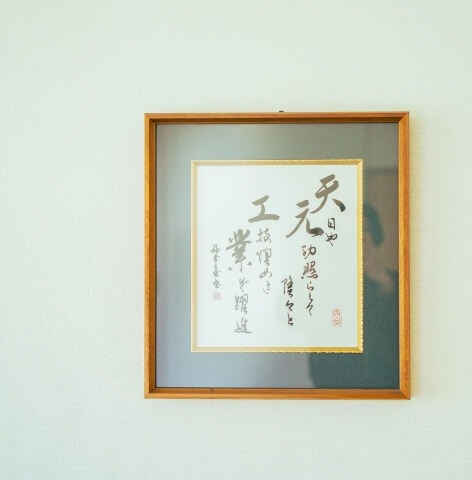 天日や
元功照らして
隆々と
工技煌めき
業躍進